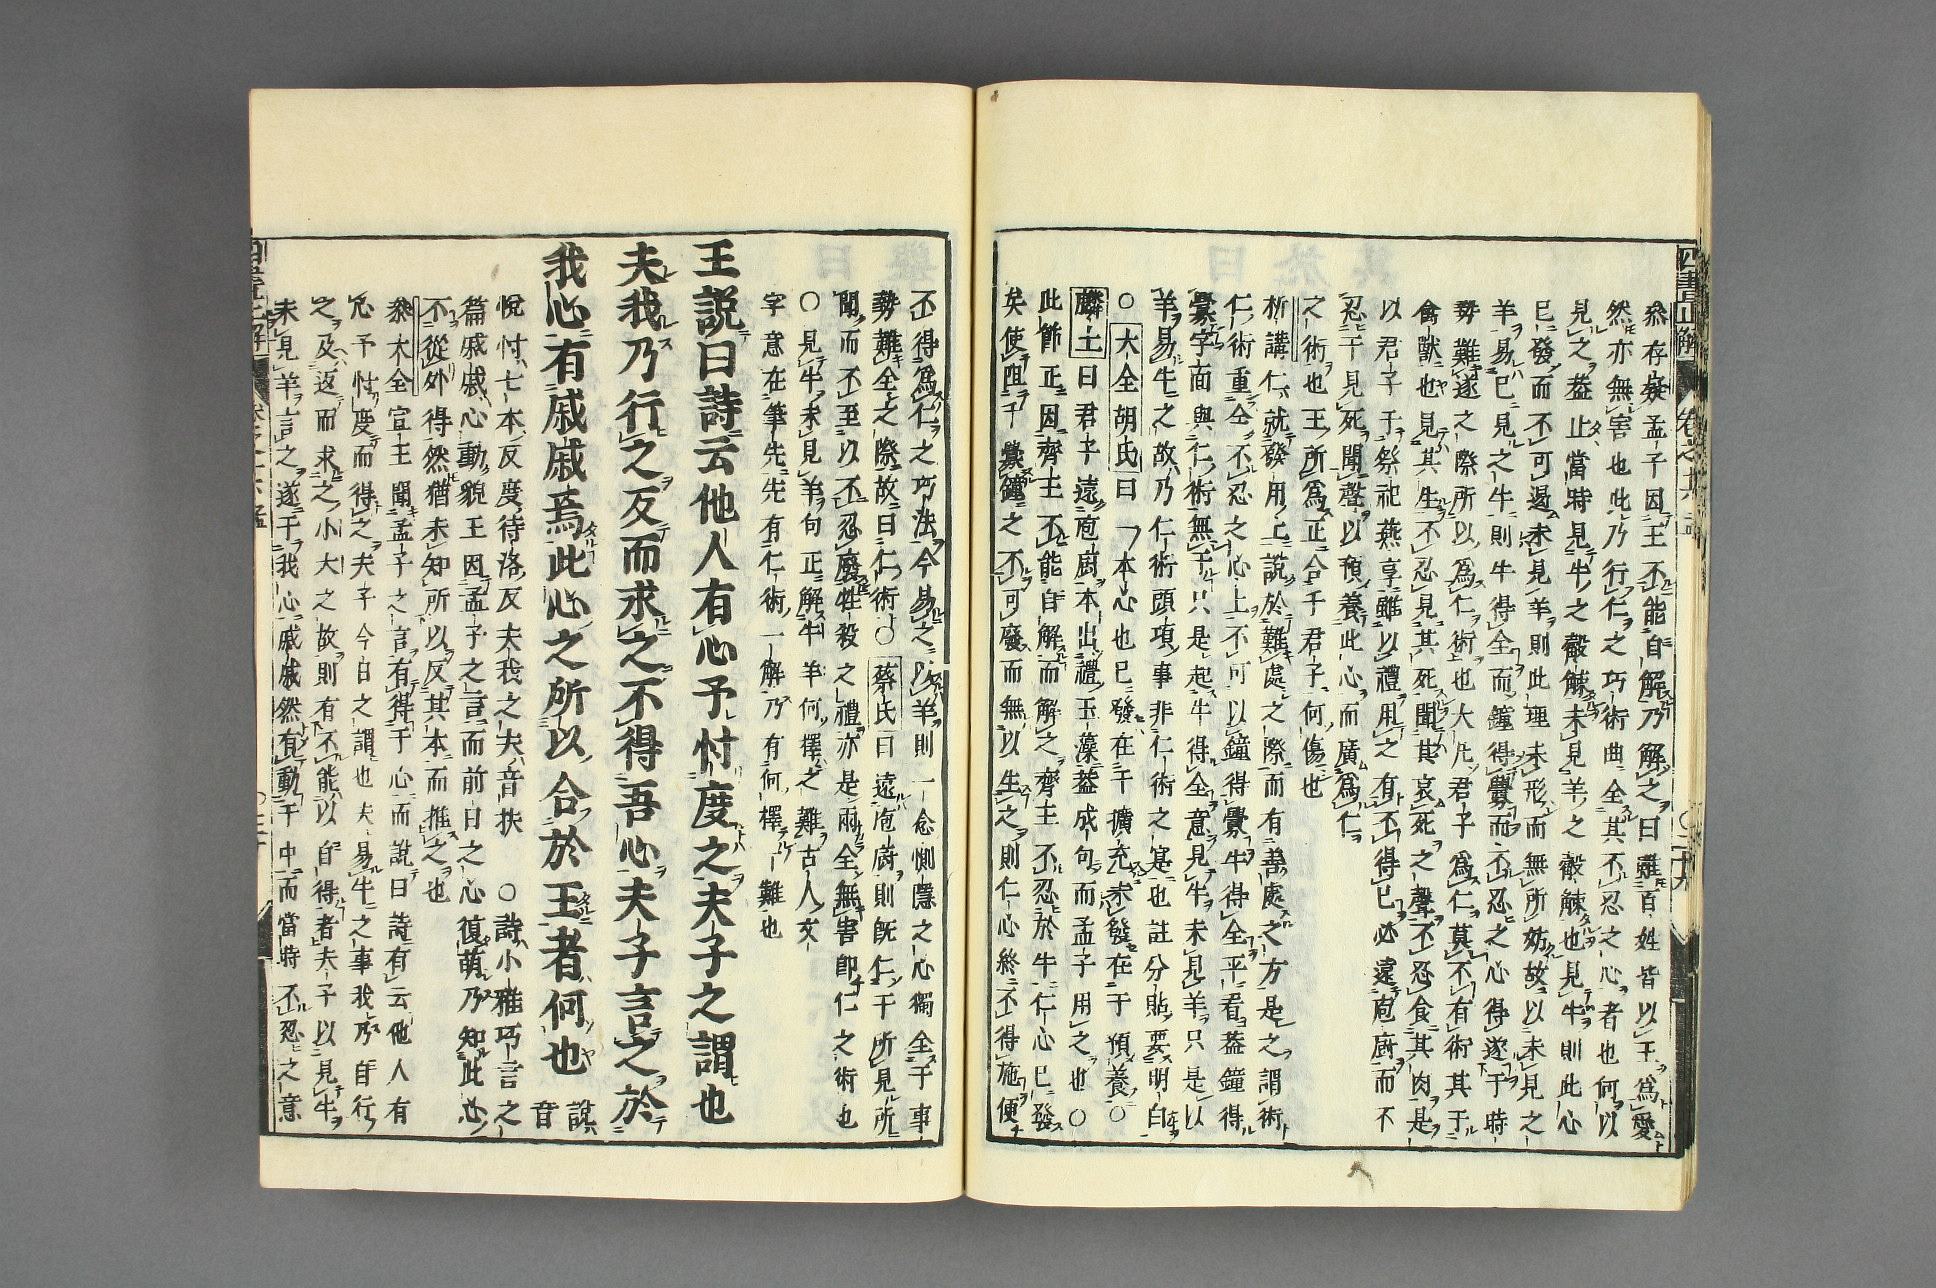 叅存疑孟子因王不能自解乃解之曰雖百姓皆以王爲愛
然亦無害也此乃行仁之巧術曲全其不忍之心者也何以
見之葢止當時見牛之觳觫未見羊之觳觫也見牛則此心
已發而不可遏未見羊則此理未形而無所妨故以未見之
羊易已見之牛則牛得全而鐘得釁而不忍之心得遂于時
勢難遂之際所以爲仁術也大凡君子爲仁莫不有術其于
禽獸也見其生不忍見其死聞其哀死之聲不忍食其肉是
以君子于祭祀燕享雖以禮用之有不得已必遠庖廚而不
忍于見死聞聲以預養此心而廣爲仁
之術也王所爲正合于君子何傷也
析講仁就發用上說於難處之際而有善處之方是之謂術
仁術重全不忍之心上不可以鐘得釁牛得全平看葢鐘得
釁字面與仁術無干只是起牛得全意見牛未見羊只是以
羊易牛之故乃仁術頭項事非仁術之寔也註分貼要明白
○大全胡氏曰本心也已發在于擴充未發在于預養○
麟士曰君子遠庖廚本出禮玉藻葢成句而孟子用之也○
此節正因齊王不能自解而解之齊王不忍於牛仁心已發
矣使阻于釁鐘之不可廢而無以生之則仁心終不得施便
不得爲仁之巧法今易之以羊則一念惻隱之心獨全于事
勢難全之際故曰仁術○蔡氏曰遠庖廚則旣仁于所見所
聞而不至以不忍廢牲殺之禮亦是兩全無害卽仁之術也
○見牛未見羊句正解牛羊何擇之難古人文
字意在筆先先有仁術一解乃有何擇一難也
王説曰詩云他人有心予忖度之夫子之謂也
夫我乃行之反而求之不得吾心夫子言之於
我心有戚戚焉此心之所以合於王者何也
說音
悅忖七本反度待洛反夫我之夫音扶　○詩小雅巧言之
篇戚戚心動貌王因孟子之言而前日之心復萌乃知此心
不從外得然猶未知所以反其本而推之也
叅大全宣王聞孟子之言有得于心而說曰詩有云他人有
心予忖度而得之夫子今日之謂也夫易牛之事我乃自行
之及返而求之小大之故則有不能以自得者夫子以見牛
未見羊言之遂于我心戚戚然有動于中而當時不忍之意